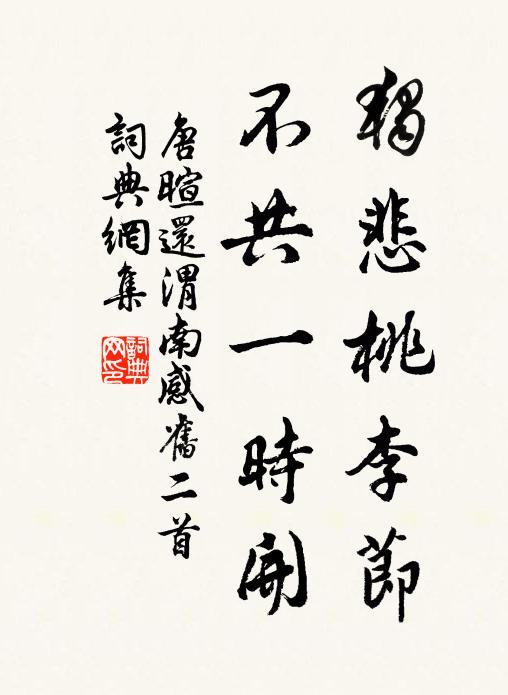 獨悲桃李節
不共一時開
唐暄還渭南感舊二首
詞典網集
詞典网印